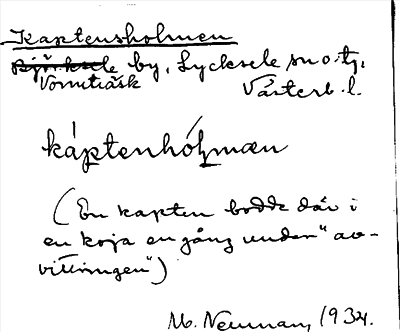 Kaptensholmen
Björksele by, Lycksele sn o. tg,
Vormträsk Västerb. l.
káptenhólmæn
(En kapten bodde där i
en koja en gång under "av-
vittringen")
M. Neuman, 1934.